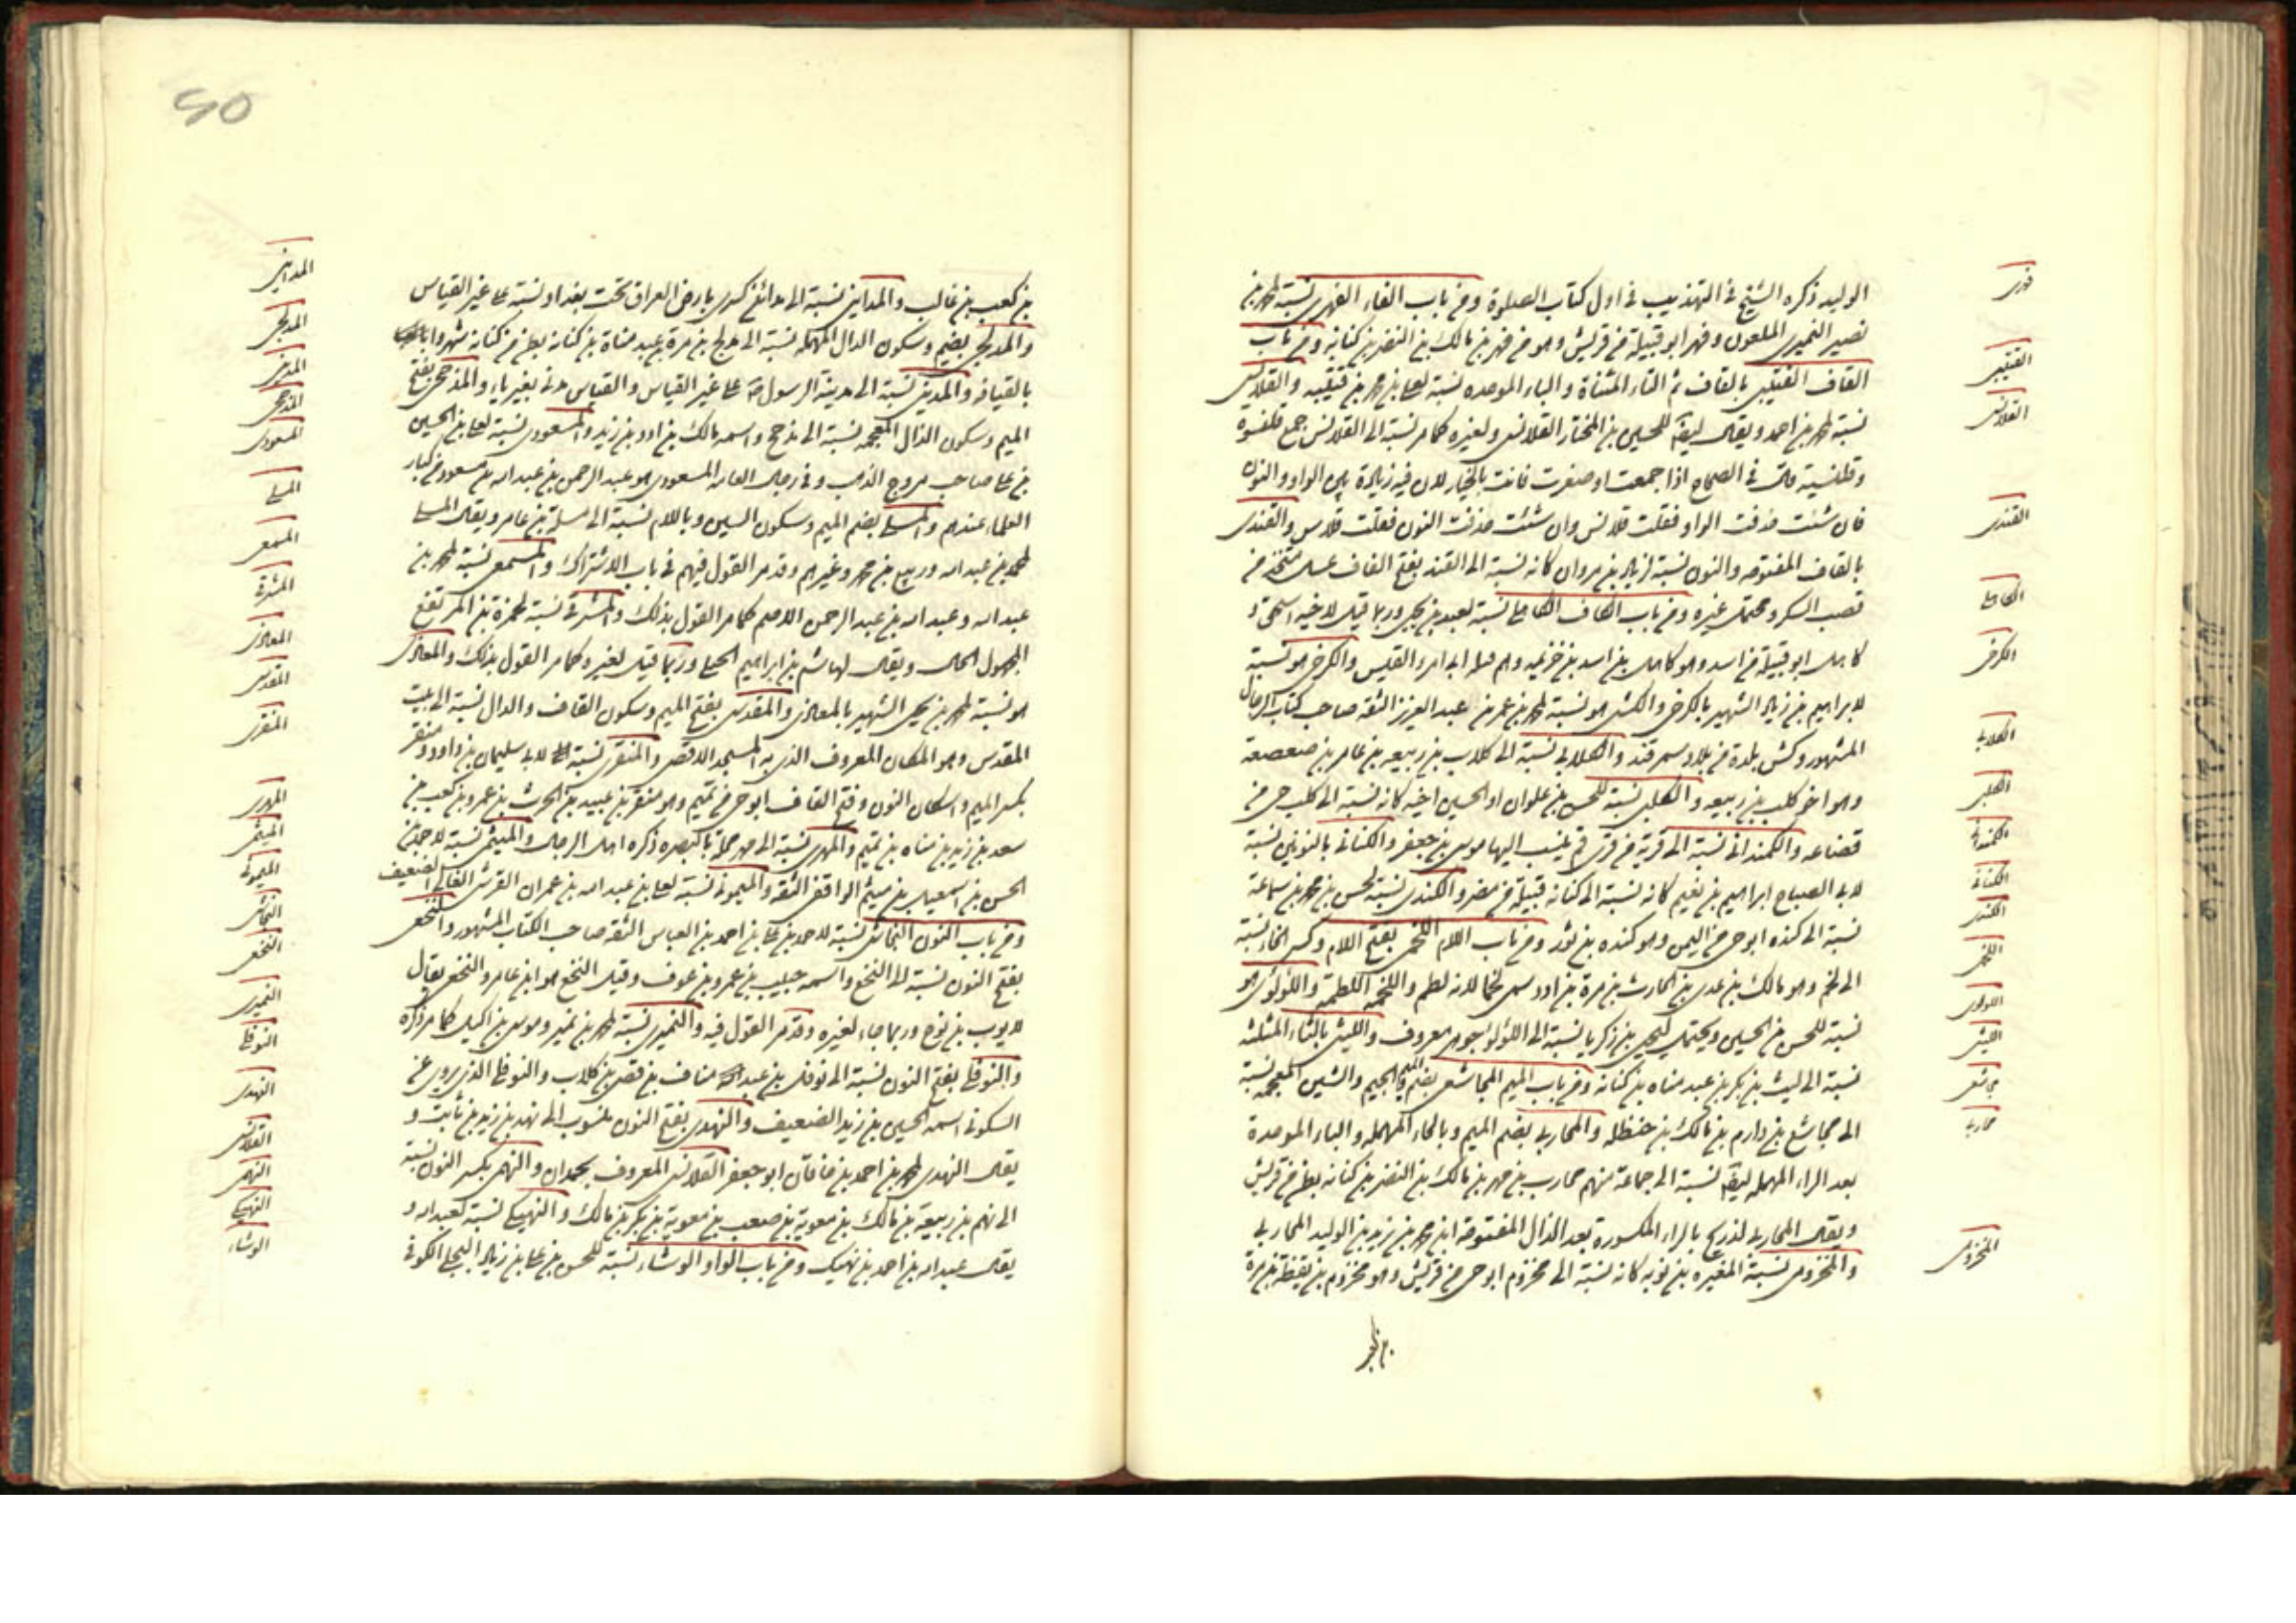 الوليد ذكره الشيخ في التهذيب في اول كتاب الصلوة ومن باب الفاء الفهري نسبة لمحمد بن
نصير النميري الملعون وفهر ابو قبيلة من قريش وهو من فهر بن مالك بن النضر بن كنانة ومن باب
القاف القتيبي بالقاف ثم التاء المثناة والباء الموحده نسبة لعلي بن محمد بن قتيبه والقلانسي
نسبة لمحمد بن احمد ويقال ايضا للحسين بن المختار القلانسي ولغيره كما مر نسبة الى القلانس جمع قلنسوة
وقلنسية قال في الصحاح اذا جمعت او صغرت فانت بالخيار لان فيه زيادة بين الواو والنون
فان شئت حذفت الواو فقلت قلانس وان شئت حذفت النون فقلت قلاس والقندي
بالقاف المفتوحه والنون نسبة لزياد بن مروان كانه نسبة الى القند بفتح القاف عسل متخذ من
قصب السكر ومحتمل غيره ومن باب الكاف الكاهلي نسبة لعبد بن يحيى وربما قيل لاخيه اسحق و
كاهل ابو قبيلة من اسد وهو كاهل بن اسد بن خزيمه وهم قتلة ابي امرء القيس والكرخي هو نسبة
لابراهيم بن زياد الشهير بالكرخي والكشي هو نسبة لمحمد بن عمر بن عبد العزيز الثقة صاحب كتاب الرجال
المشهور وكش بلدة من بلاد سمرقند والكلابي نسبة الى كلاب بن ربيعه بن عامر بن صعصعة
وهو اخو كلب بن ربيعه والكلبي نسبة للحسن بن علوان او الحسين اخيه كانه نسبة الى كلب حي من
قضاعه والكمنداني نسبة الى قرية من قرى قم ينسب اليها موسى بن جعفر والكناني بالنونين نسبة
لابي الصباح ابراهيم بن نعيم كانه نسبة الى كنانه قبيلة من مضر والكندي نسبة لحسن بن محمد بن سماعة
نسبة الى كنده ابو حي من اليمن وهو كنده بن ثور ومن باب اللام اللخمي بفتح اللام وكسر الخاء نسبة
الى لخم وهو مالك بن عدي بن الحارث بن مرة بن ادد سمي لخما لانه لطم واللخمه اللطمه واللؤلؤي هو
نسبة للحسن بن الحسين ويحتمل ليحيى بن زكريا نسبة الى اللؤلؤ جوهر معروف والليثي بالثاء المثلثه
نسبة الى ليث بن بكر بن عبد مناه بن كنانه ومن باب الميم المجاشعي بضم الميم والجيم والشين المعجمه نسبة
الى مجاشع بن دارم بن مالك بن حنظله والمحاربي بضم الميم وبالحاء المهمله والباء الموحدة
بعد الراء المهمله ايضا نسبة الى جماعة منهم محارب بن فهر بن مالك بن النضر بن كنانه بطن من قريش
ويقال المحاربي لذريح بالراء المكسورة بعد الذال المفتوحة ابن محمد بن زيد بن الوليد المحاربي
والمخزومي نسبة المغيره بن نوبه كانه نسبة الى مخزوم ابو حي من قريش وهو مخزوم بن يقظة بن مرة
القتيبي
القلانسي
القندي
الكاهلي
الكرخي
الكلابي
الكلبي
الكمنداني
الكناني
الكندي
اللخمي
اللؤلؤي
الليثي
مجاشعي
محاربي
المخزومي
٤٥
بن كعب بن غالب والمدايني نسبة الى مدائن كسرى بارض العراق تحت بغداد نسبة على غير القياس
والمدلجي بضم وسكون الدال المهمله نسبة الى مدلج بن مرة بن عبد مناة بن كنانه بطن من كنانه شهروا
بالقيافه والمديني نسبة الى مدينة الرسول ص على غير القياس والقياس مدني بغير ياء والمذحجي بفتح
الميم وسكون الذال المعجمه نسبة الى مذحج واسمه مالك بن ادد بن زيد والمسعودي نسبة لعلي بن الحسين
بن علي صاحب مروج الذهب وفي رجال العامه المسعودي هو عبد الرحمن بن عبد الله بن مسعود من كبار
العلماء عندهم والمسلي بضم الميم وسكون السين وباللام نسبة الى مسلية بن عامر ويقال المسلي
لمحمد بن عبد الله وربيع بن محمد وغيرهم وقد مر القول فيهم في باب الاشتراك والمسمعي نسبة لمحمد بن
عبد الله وعبد الله بن عبد الرحمن الاصم كما مر القول بذلك والمشرقي نسبة لحمزة بن المرتفع
المجهول الحال ويقال لهاشم بن ابراهيم الجبلي وربما قيل لغيره كما مر القول بذلك والمعاذي
هو نسبة لمحمد بن يحيى الشهير بالمعاذي والمقدسي بفتح الميم وسكون القاف والدال نسبة الى بيت
المقدس وهو المكان المعروف الذي به المسجد الاقصى والمنقري نسبة لابي سليمان بن داود ومنقر
بكسر الميم واسكان النون وفتح القاف ابو حي من تميم وهو منقر بن عبيد بن الحرث بن عمرو بن كعب بن
سعد بن زيد بن مناه بن تميم والمهري نسبة الى مهر محلة بالبصره ذكره اهل الرجال والميثمي نسبة لاحمد بن
الحسن بن اسمعيل بن ميثم الواقفي الثقه والميموني نسبة لعلي بن عبد الله بن عمران القرشي الغالي الضعيف
ومن باب النون النجاشي نسبة لاحمد بن علي بن احمد بن العباس الثقه صاحب الكتاب المشهور والنخعي
بفتح النون نسبة الى النخع واسمه حبيب بن عمرو بن عوف وقيل النخع هو ابن عامر والنخعي يقال
لايوب بن نوح وربما جاء لغيره وقد مر القول فيه والنميري نسبة لمحمد بن نمير وموسى بن اكيل كما مر ذكره
والنوفلي بفتح النون نسبة الى نوفل بن عبد مناف بن قصي بن كلاب والنوفلي الذي يروي عن
السكوني اسمه الحسين بن زيد الضعيف والنهدي بفتح النون منسوب الى نهد بن زيد بن ثابت و
يقال النهدي لمحمد بن احمد بن خاقان ابو جعفر القلانسي المعروف بحمدان والنهمي بكسر النون نسبة
الى نهم بن ربيعة بن مالك بن معوية بن صعب بن معوية بن بكر بن مالك والنهيكي نسبة لعبد الله و
يقال عبد الله بن احمد بن نهيك ومن باب الواو الوشاء نسبة للحسن بن علي بن زياد البجلي الكوفي
المدايني
المدلجي
المديني
المذحجي
المسعودي
المسلي
المسمعي
المشرقي
المعاذي
المقدسي
المنقري
المهري
الميثمي
الميموني
النجاشي
النخعي
النميري
النوفلي
النهدي
القلانسي
النهمي
النهيكي
الوشاء